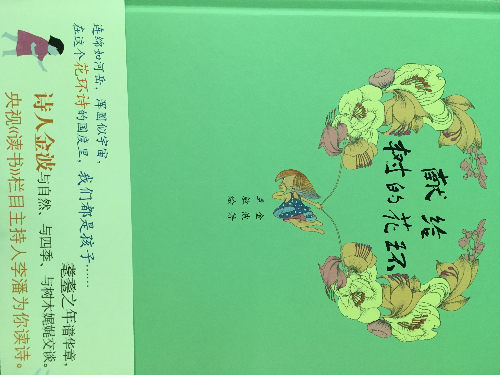 献给
树的花环
金波 著
连绵如河岳，浑圆似宇宙，
在这个花环诗的国度里，我们都是孩子……
耄耋之年谱华章，
诗人金波与自然、与四季、与树木娓娓交谈。
央视《读书》栏目主持人李潘为你读诗。